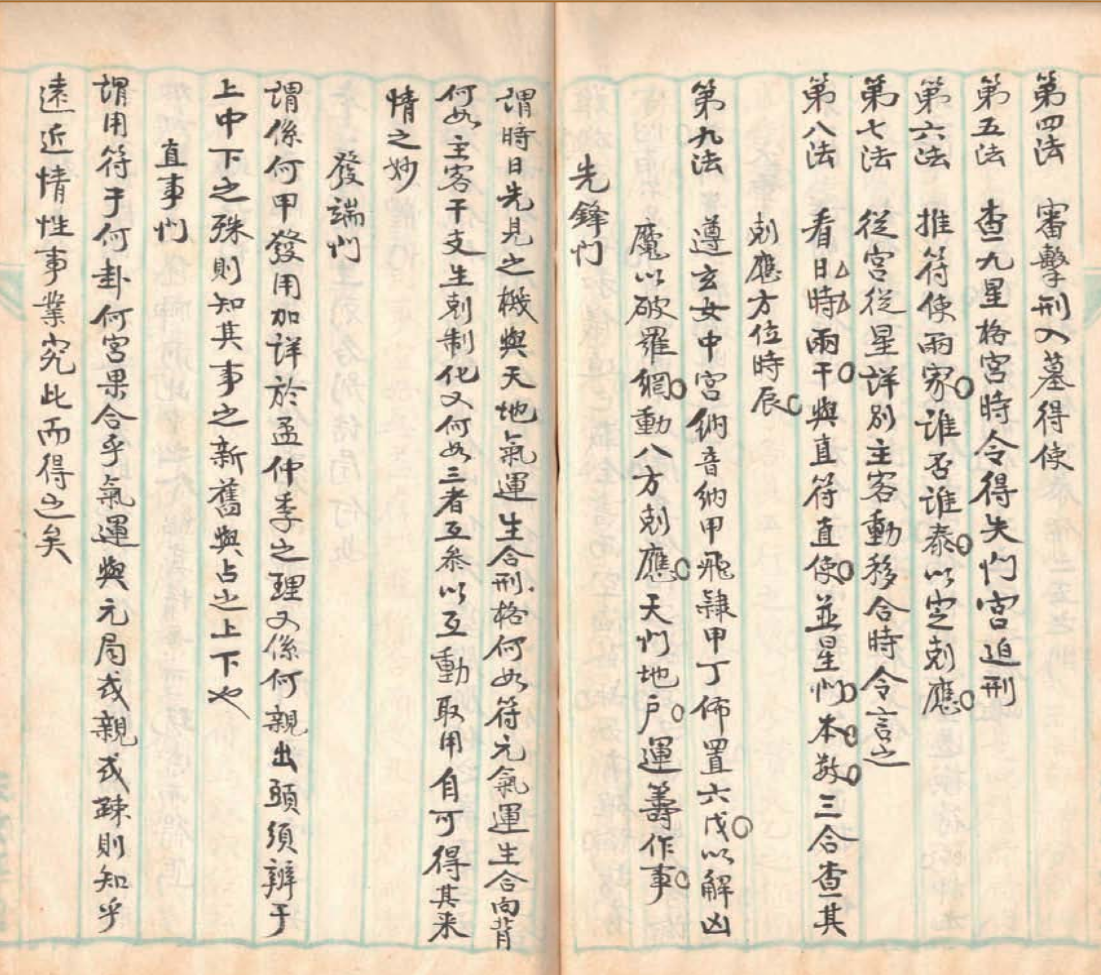 第四法 審擊刑入墓得使
第五法 查九星格宮時令得失門宮迫刑
第六法 推符使兩家誰否誰泰以定剋應
第七法 從宮從星詳別主客動移合時令言之
第八法 看日時兩干與直符直使並星門本数三合查其
剋應方位時辰
第九法 遵玄女中宮納音納甲飛隷甲丁佈置六戊以解凶
魔以破羅網動八方剋應天門地户運籌作事
先鋒門
謂時日先見之機與天地氣運生合刑格何如符元氣運生合向背
何如主客干支生剋制化又何如三者互参以互動取用自可得其来
情之妙
發端門
謂係何甲發用加详於孟仲季之理又係何親出頭須辨于
上中下之殊則知其事之新舊與占之上下也
直事門
謂用符于何卦何宮果合乎氣運與元局或親或疎則知乎
遠近情性事業究此而得之矣